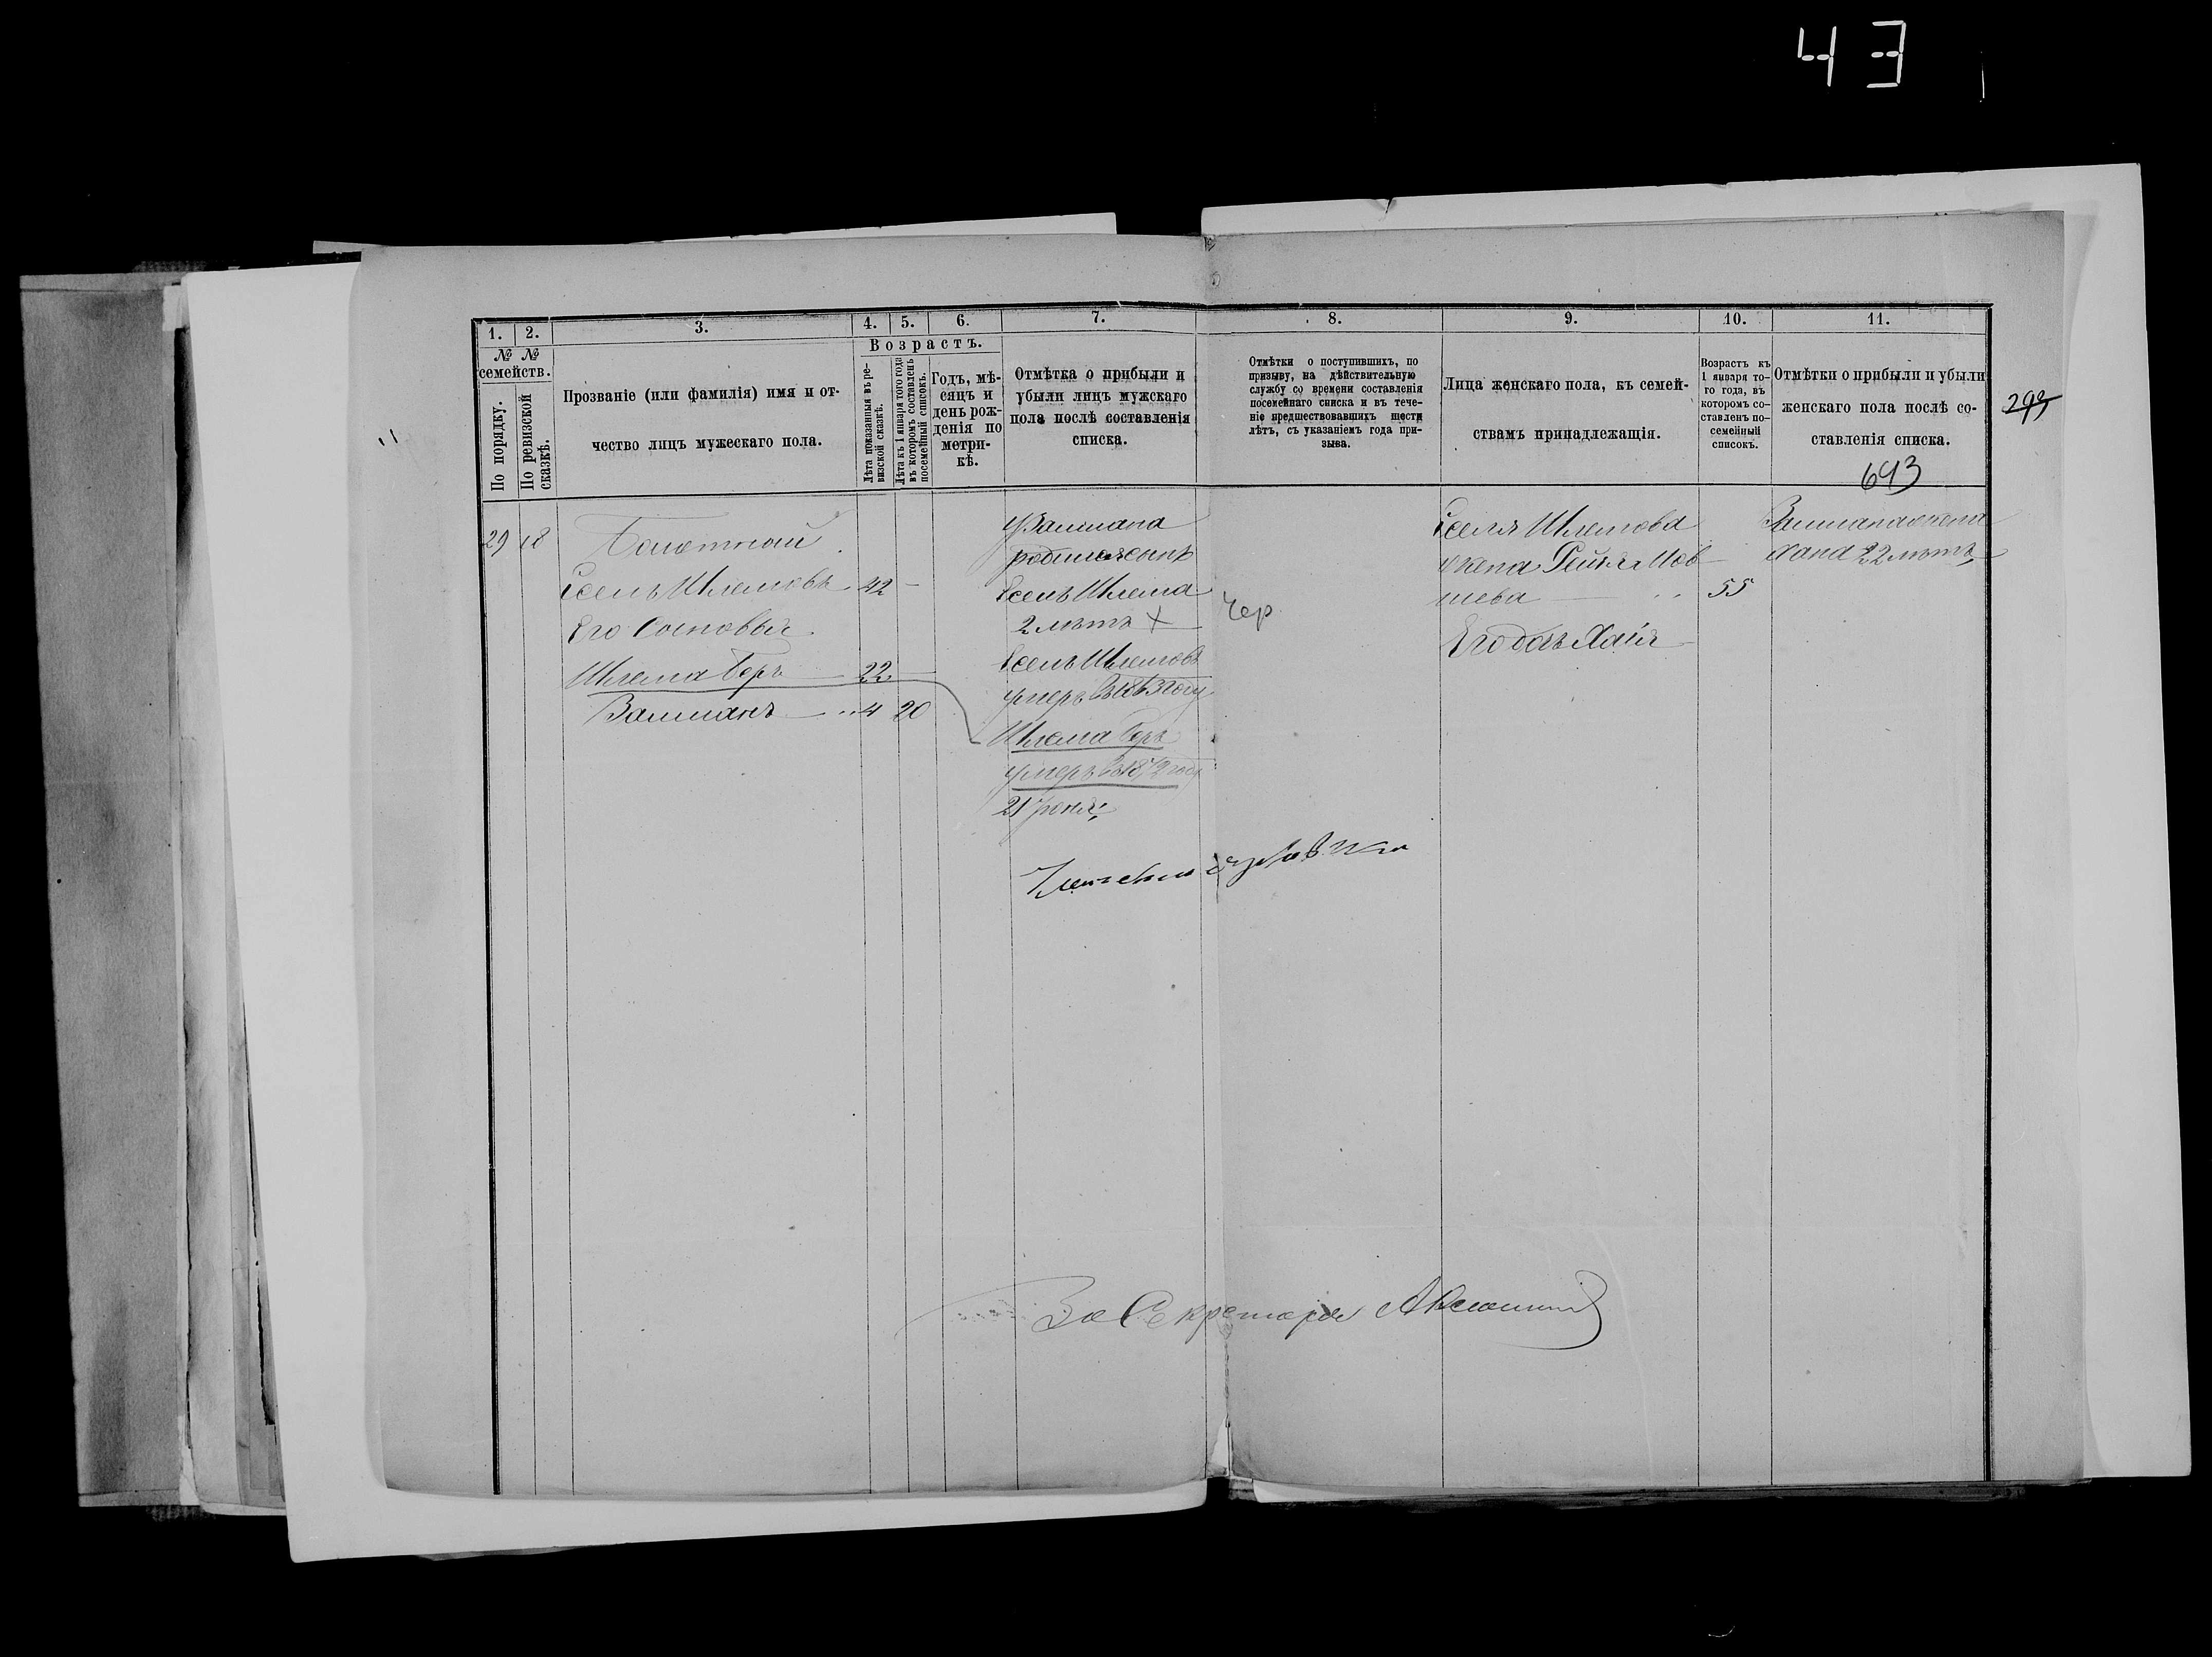 43
1. 2. 3. 4. 5. 6. 7. 8. 9. 10. 11.
№ № семействъ.
По порядку.
По ревизской сказкѣ.
Прозваніе (или фамилія) имя и от-
чество лицъ мужескаго пола.
Возрастъ.
Лѣта показанныя въ ре-
визской сказкѣ.
Лѣта къ 1 января того года
въ которомъ составленъ
посемейный списокъ.
Годъ, мѣ-
сяцъ и
день рож-
денія по
метри-
кѣ.
Отмѣтка о прибыли и
убыли лицъ мужскаго
пола послѣ составленія
списка.
Отмѣтки о поступившихъ, по
призыву, на дѣйствительную
службу со времени составленія
посемейнаго списка и въ тече-
ніе предшествовавшихъ шести
лѣтъ, съ указаніемъ года при-
зыва.
Лица женскаго пола, къ семей-
ствамъ принадлежащія.
Возрастъ къ
1 января то-
го года, въ
которомъ со-
ставленъ по-
семейный
списокъ.
Отмѣтки о прибыли и убыли
женскаго пола послѣ со-
ставленія списка.
643
29 18
Іосель Шлемовъ 42 —
Его Сыновья
Шлема Беръ 22 —
Залманъ 4 20
У Залмана
родился сынъ
Іосель Шлема
2 лѣтъ
Іосель Шлемовъ
умеръ въ 1863 году
Шлема Беръ
умеръ въ 1872 году
21 Іюня
Чер
Іоселя Шлемова
жена Рейзя Мов-
шева 55
Его дочь Хая
Залмана жена
Хана 22 лѣтъ
За Секретаря